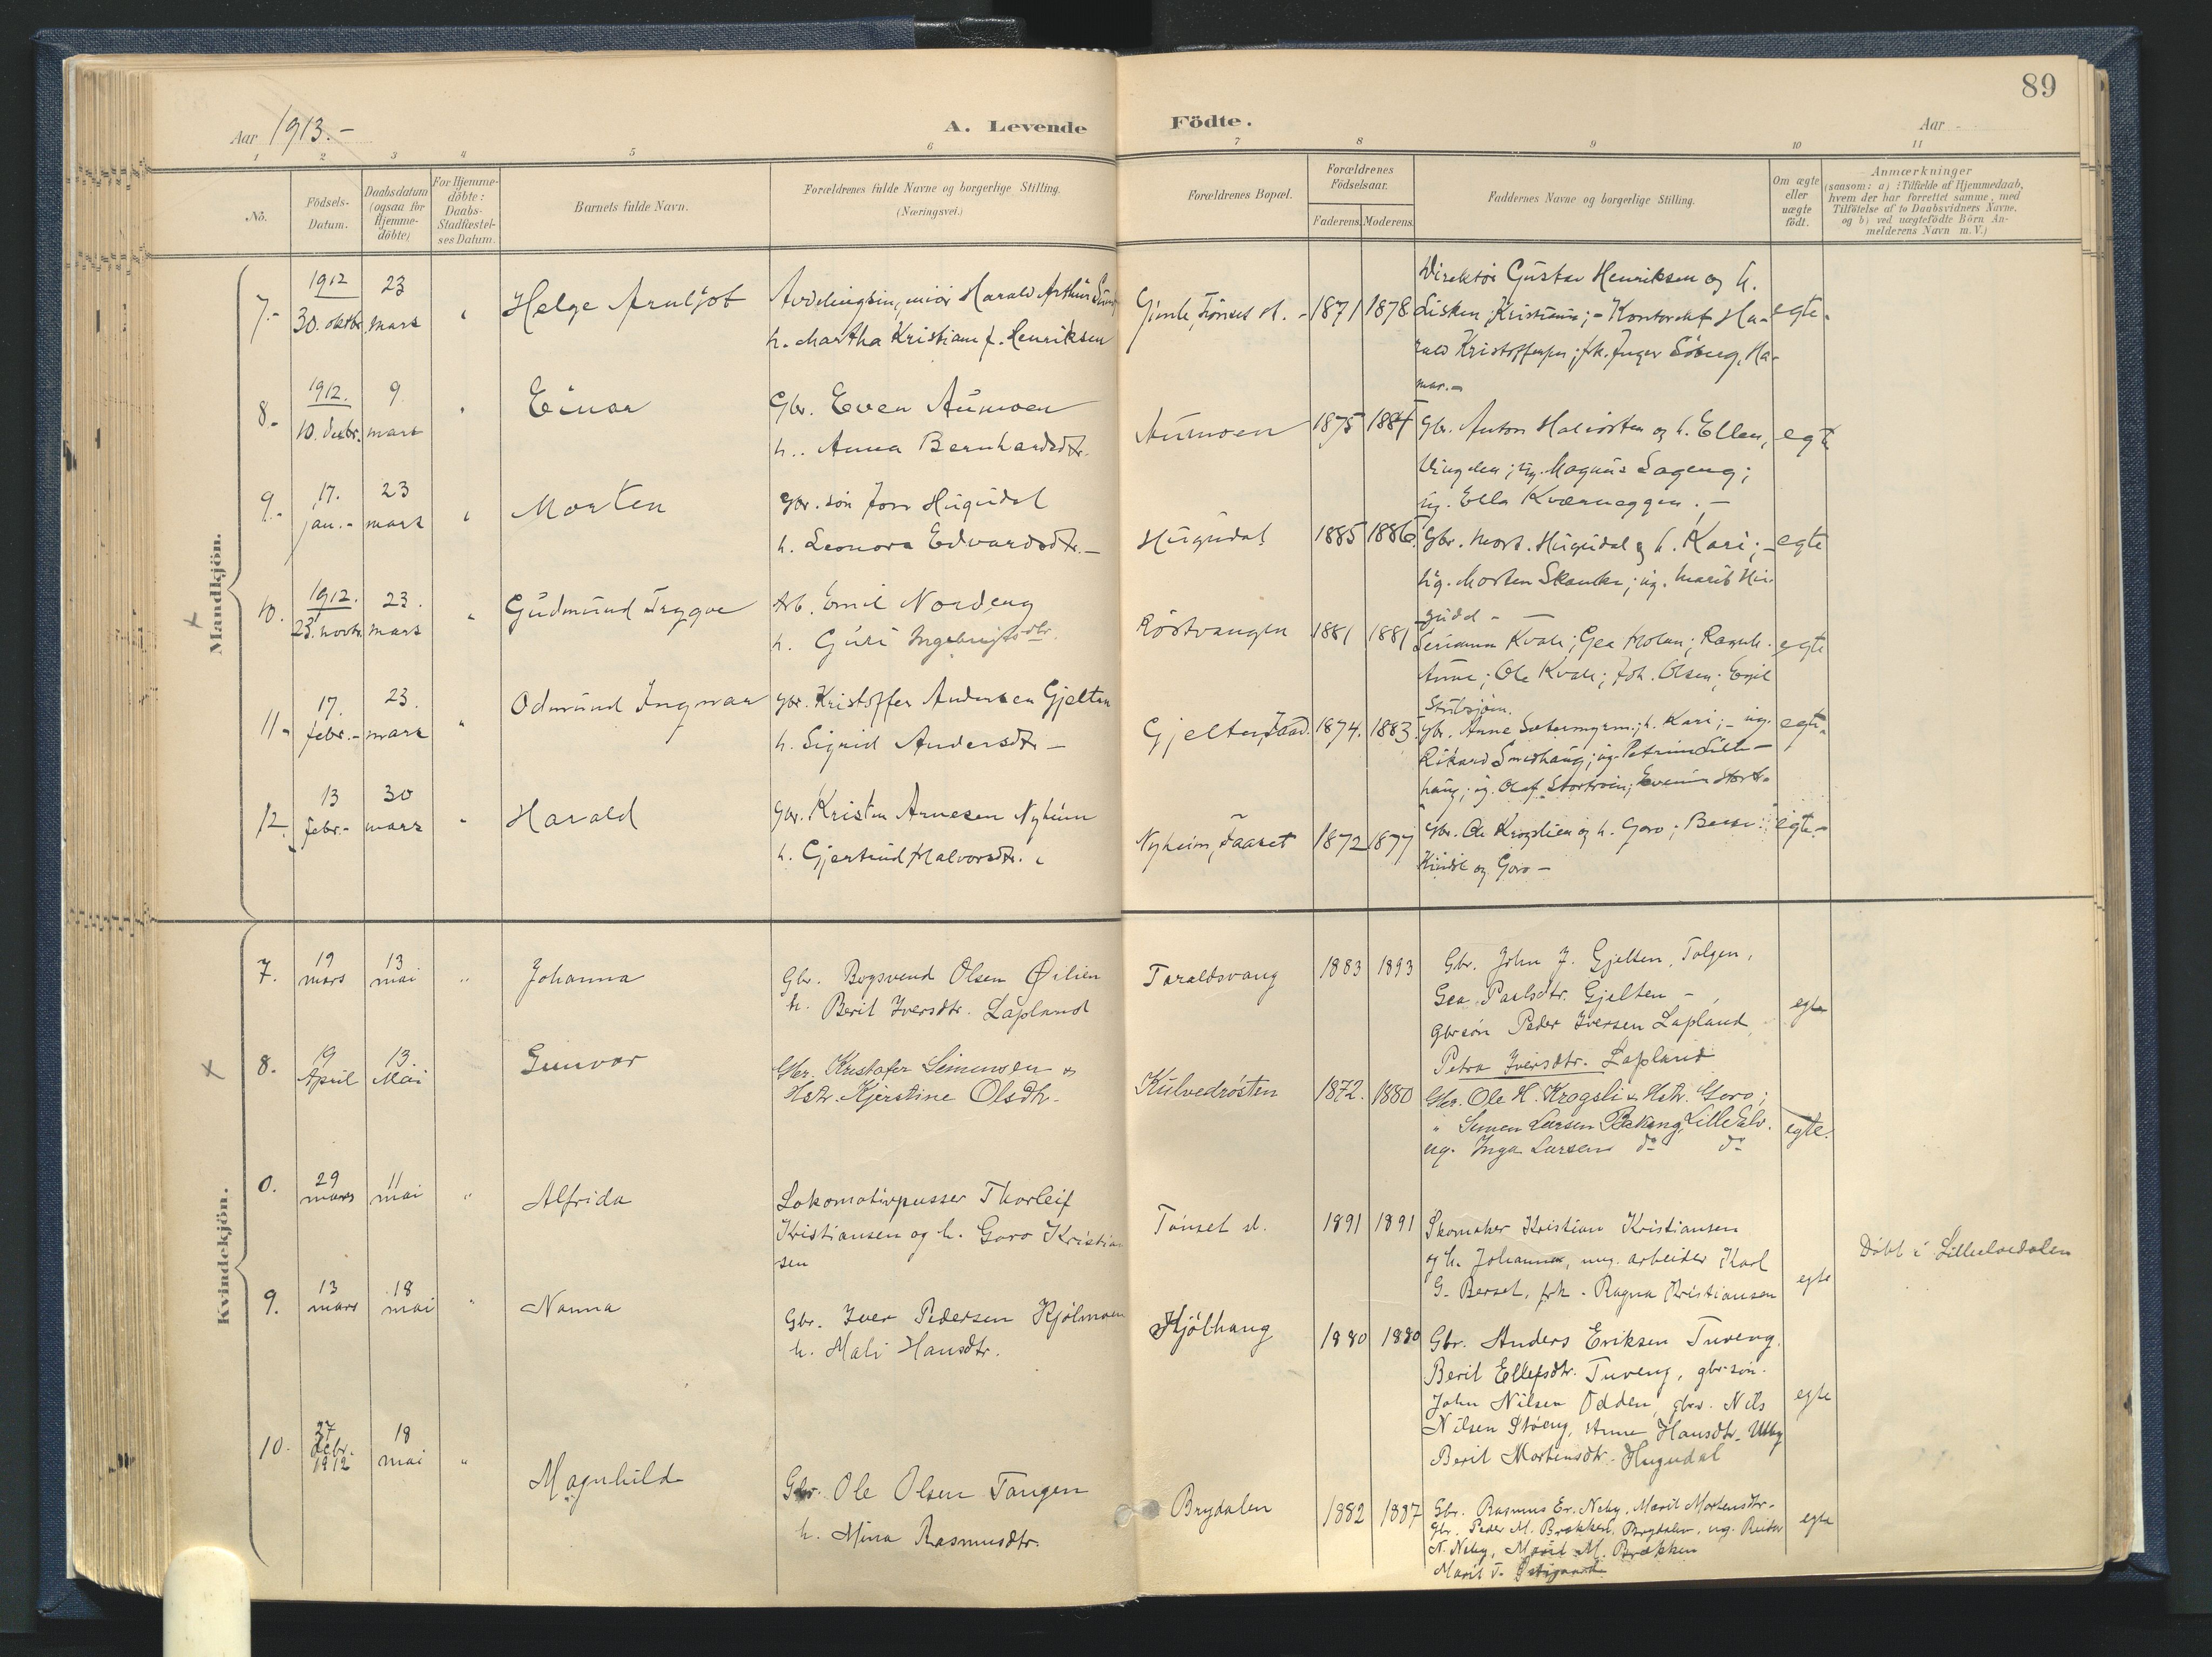 89
Aar 1913.-
A. Levende Födte.
Aar
1 2 3 4 5 6 7 8 9 10 11
No.
Födsels-
Datum.
Daabsdatum
(ogsaa for
Hjemme-
döbte)
For Hjemme-
döbte:
Daabs-
Stadfæstel-
ses Datum.
Barnets fulde Navn.
Forældrenes fulde Navne og borgerlige Stilling.
(Næringsvei.)
Forældrenes Bopæl.
Forældrenes
Födselsaar.
Faderens. Moderens.
Faddernes Navne og borgerlige Stilling.
Om ægte
eller
uægte
födt.
Anmærkninger
(saasom: a) i Tilfælde af Hjemmedaab,
hvem der har forrettet samme, med
Tilföielse af to Daabsvidners Navne,
og b) ved uægtefödte Börn An-
melderens Navn m.V.)
Mandkjön.
7.-
1912
30. oktbr.
23
mars
Helge Arnljot
Harald Arthur
h. Martha Kristiane f. Henriksen
Gimle, Tönset st.
1871 1878
Direktör Gustav Henriksen og h.
Lisken, Kristiania; - Kontorchef Ha-
rald Kristoffersen; frk. Inger Söberg, Ha-
mar.-
egte.
8.-
1912.
10. desbr.
9
mars
Einar
Gbr. Even Aumoen
h. Anna Bernhardsdtr.
Aumoen
1875 1884
Gbr. Anton Halvorsen og h. Ellen,
Vingelen; ug. Magnus Sageng;
ug. Ella Kværneggen.-
egte
9.-
17.
jan.-
23
mars
Morten
Gbr. sön Jon Hugudal
h. Leonora Edvardsdtr.-
Hugudal
1885 1886
Gbr. Mort. Hugudal og h. Kari;-
ug. Morten Skanke; ug. Marit Hu-
gudal -
egte
10.
1912.
23. novbr.
23.
mars
Gudmund Trygve
Arb. Emil Nordeng
h. Guri Ingebrigtsdtr.
Röstvangen
1881 1881
Kvale; Gea Molan;
Arne; Ole Kvale; Joh. Olsen; Emil
egte
11-
17.
febr.-
23.
mars
Odmund Ingmar
Gbr. Kristoffer Andersen Gjelten
h. Sigrid Andersdtr.-
Gjelten, Faaset
1874. 1883.
Gbr. Arne Sætermyren; h. Kari;- ug.
Rikard Smedhaug; ug. Petrine Lille-
haug; ug. Olaf
egte.
12.
13
febr.-
30
mars
Harald
Gbr. Kristen Arnesen Nyheim
h. Gjertrud Halvorsdtr.
Nyheim, Faaset
1872 1877
Gbr. Ole Krogslien og h. Goro;
og Goro-
egte.-
Kvindekjön.
7.
19
mars
13
mai
"
Johanna
Gbr. Bogsvend Olsen Øilien
h. Berit Iversdtr. Lapland
Taraldsvang
1883 1893
Gbr. John J. Gjelten, Tolgen,
Gea Paulsdtr. Gjelten -
Gbrsön Peder Iversen Lapland,
Petra Iversdtr. Lapland
egte
8.
19
April
13.
Mai
Gunvor
Gbr. Kristofer Simensen &
Hstr. Kjerstine Olsdtr.
Kulvedrösten
1872. 1880
Gbr. Ole H. Krogsli & Hstr. Goro;
" Simen Larsen Bakeng, Lille Elv.
ug. Inga Larsen do do
egte.
0.
29
mars
11
mai
"
Alfrida
Lokomotivpusser Thorleif
Kristiansen og h. Goro Kristian
sen
Tönset st.
1891 1891
Skomaker Kristian Kristiansen
og h. Johanna, ung. arbeider Karl
G. Berset, frk. Ragna Kristiansen
egte
Döbt i Lilleelvedalen
9.
13
mars
18
mai
"
Nanna
Gbr. Iver Pedersen Kjölmoen
h. Mali Hansdtr.
Kjölhaug
1880 1880
Gbr. Anders Eriksen Tuveng.
Berit Ellefsdtr. Tuveng, gbr.sön.
John Nilsen Odden, gbr. Nils
Nilsen Stöeng, Anne Hansdtr. Utby
Berit Mortensdtr. Hugudal
egte
10.
27
debr.
1912
18
mai
"
Magnhild
Gbr. Ole Olsen Tangen
h. Mina Rasmusdtr.
Brydalen
1882 1887
Gbr. Rasmus Er. Neby, Marit Mortensdtr.
Gbr. Peder M. Brækken, Brydalen, ug. Reidar
N. Neby, Marit M. Brækken
Marit T. Østigaard
egte